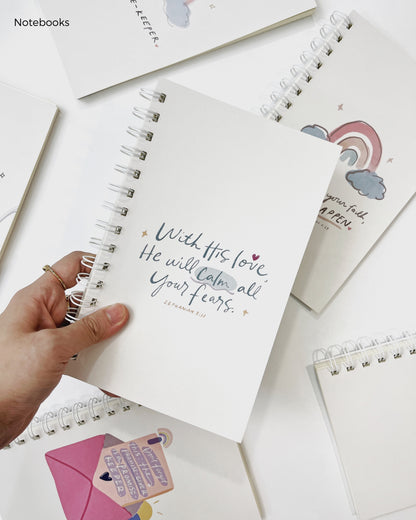 Notebooks
E-KEEPER.
With His love,
He will calm all
Your fears.
ZEPHANIAH 3:17
your faith,
APPEN.